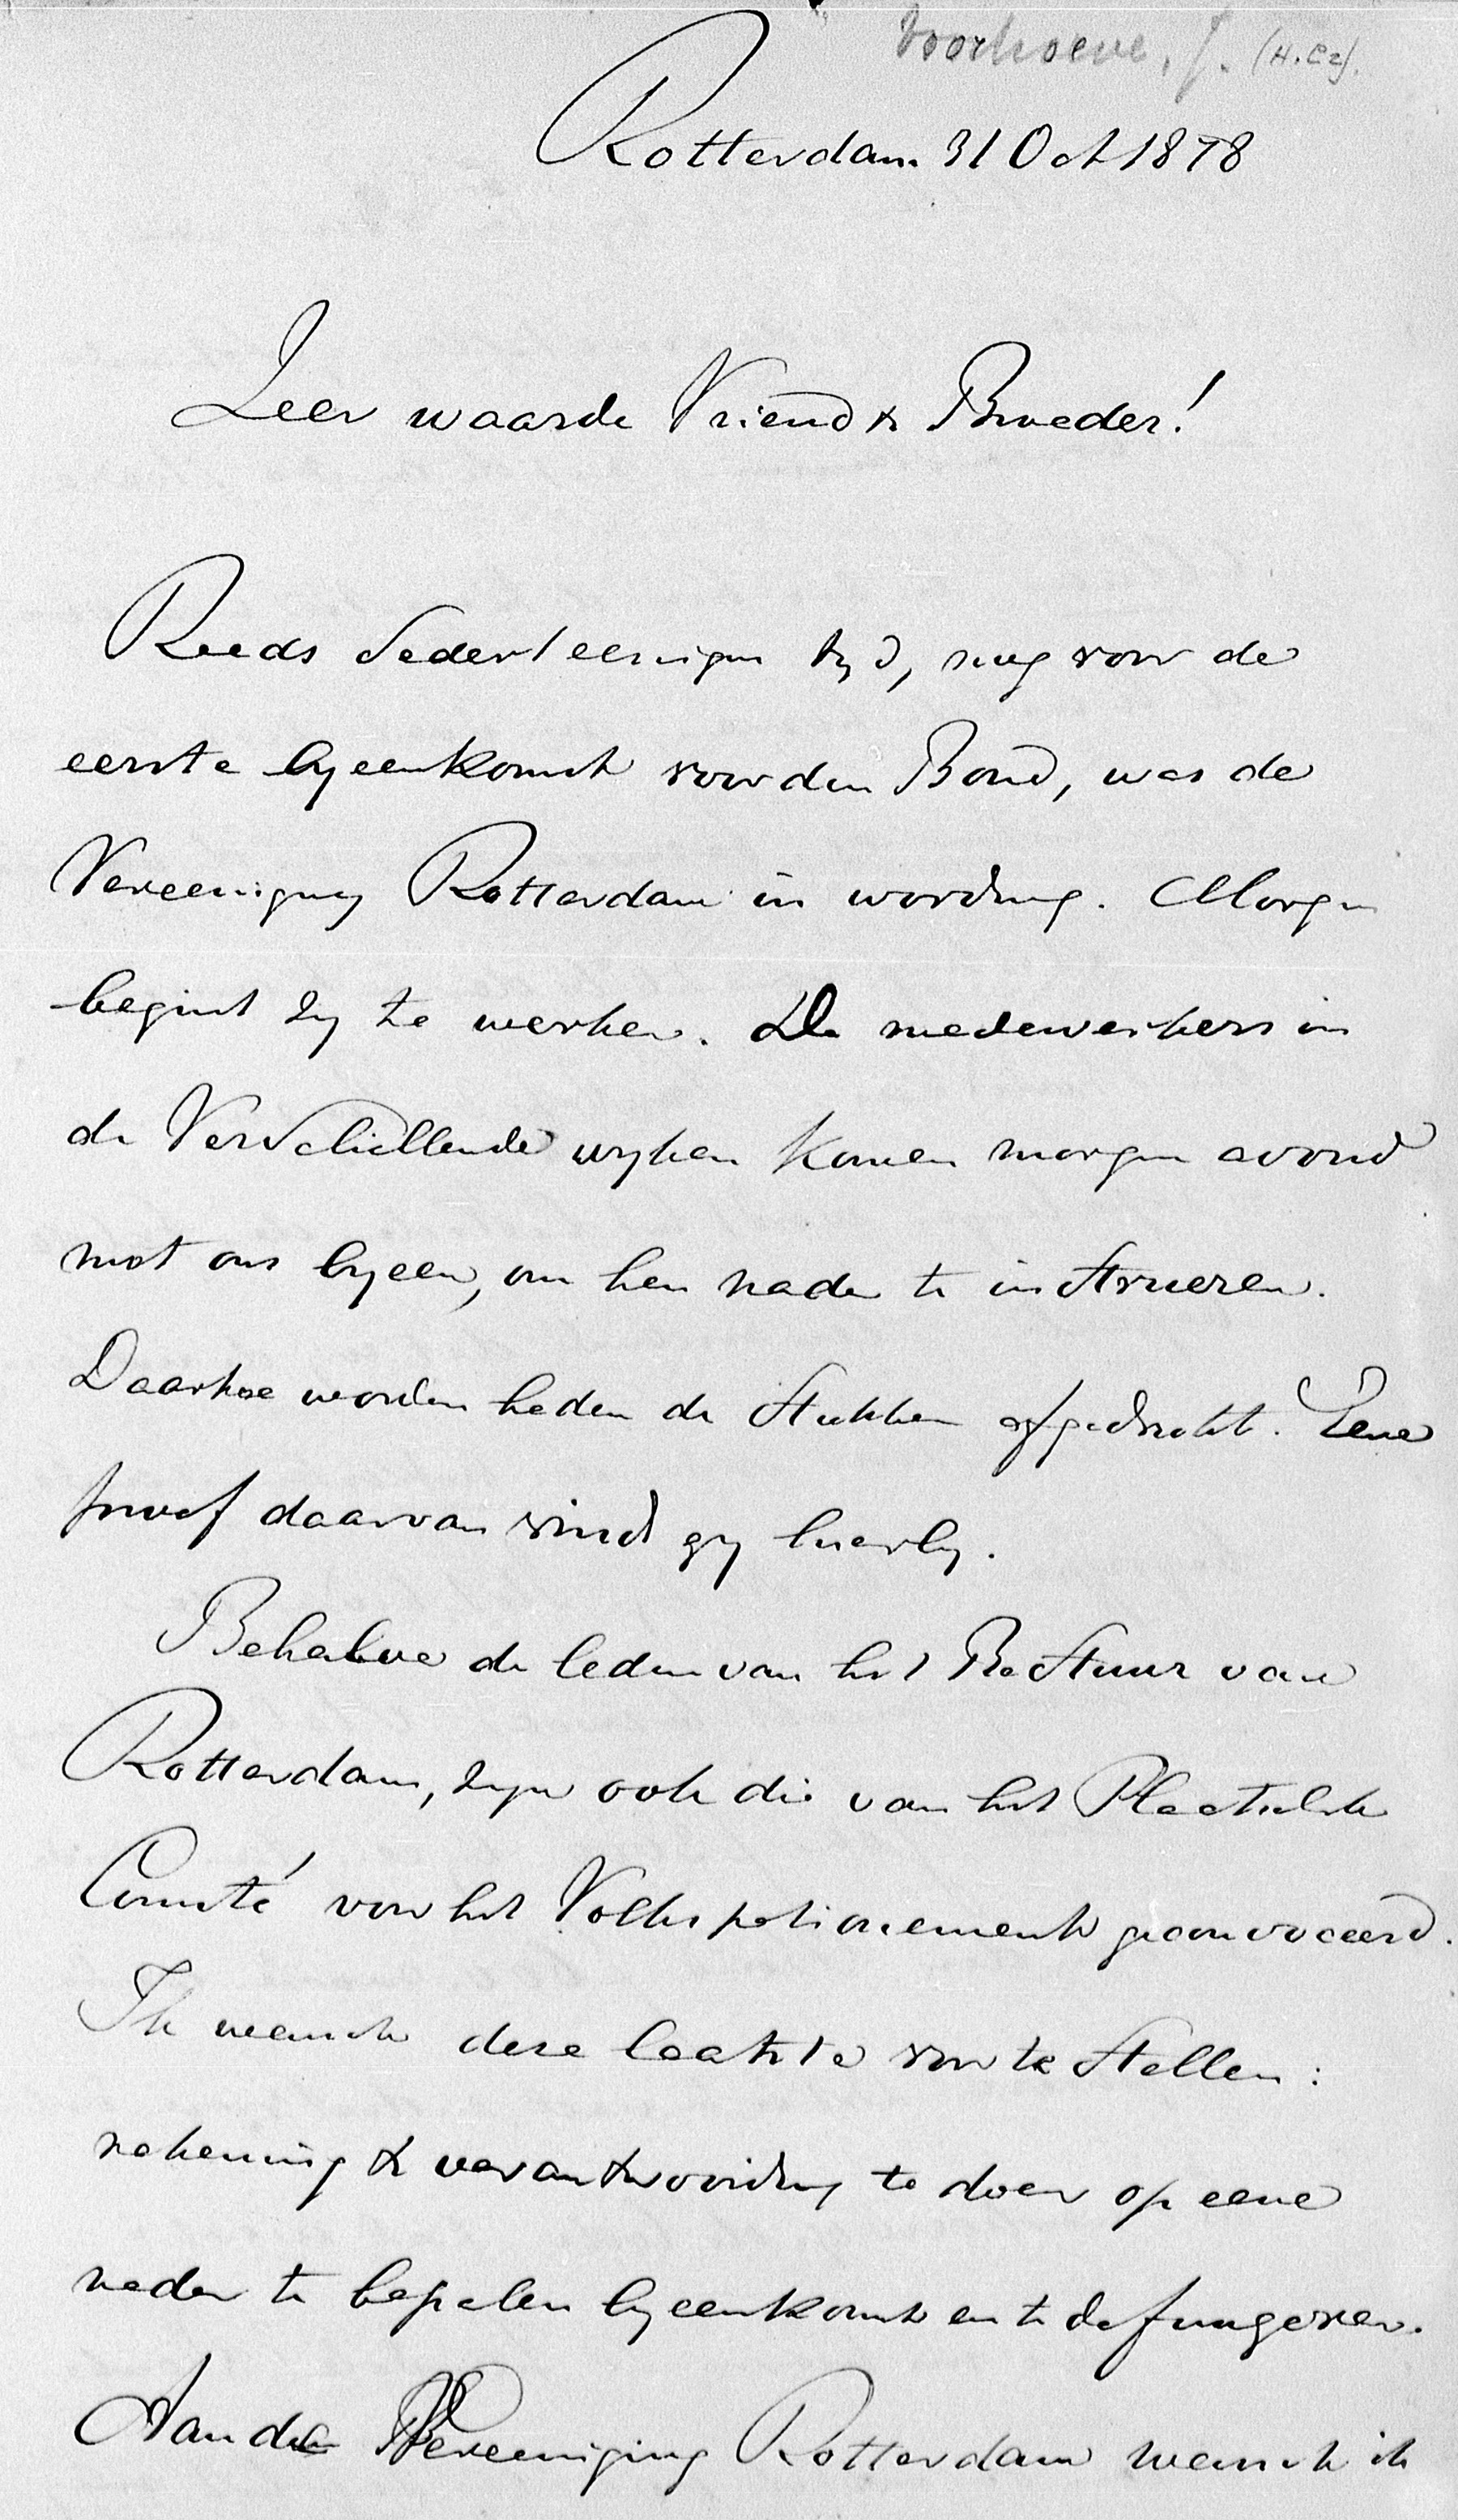 Voorhoeve, J. (H.Cz).
Rotterdam 31 Oct 1878
Zeer waarde Vriend & Broeder!
Reeds sedert eenigen tyd, nog voor de
eerste byeenkomst voor den Bond, was de
Vereeniging Rotterdam in wording. Morgen
begint zy te werken. De medewerkers in
de Verschillende wyken komen morgen avond
met ons byeen, om hen nader te instrueren.
Daartoe worden heden de Stukken afgedrukt. Eene
proef daarvan vindt gy hierby.
Behalve de leden van het Bestuur van
Rotterdam, zyn ook die van het Plaatselyk
Comité voor het Volkspetionnement geconvoceerd.
Ik wensch deze laatste voor te Stellen:
rekening & verantwoording te doen op eene
nader te bepalen byeenkomst en te defungeren.
Aan de Vereeniging Rotterdam wensch ik